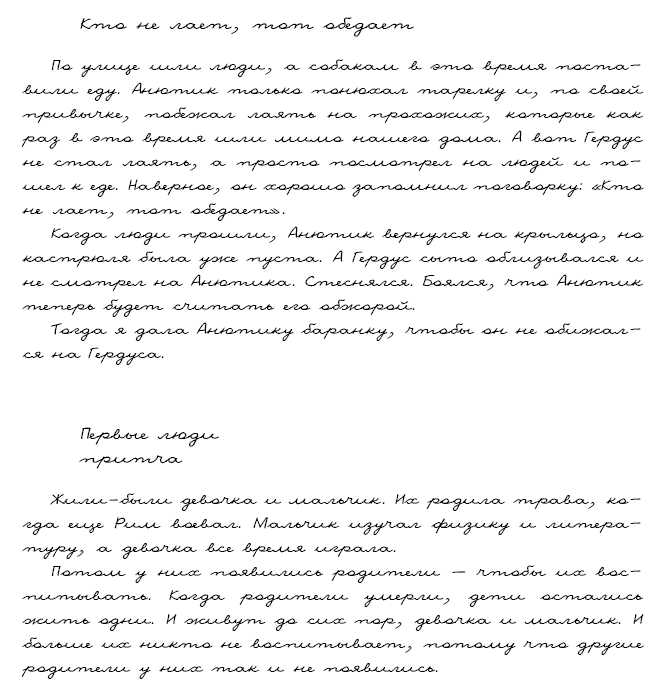 Кто не лает, тот обедает
По улице шли люди, а собакам в это время поста-
вили еду. Анютик только понюхал тарелку и, по своей
привычке, побежал лаять на прохожих, которые как
раз в это время шли мимо нашего дома. А вот Гердус
не стал лаять, а просто посмотрел на людей и по-
шел к еде. Наверное, он хорошо запомнил поговорку: «Кто
не лает, тот обедает».
Когда люди прошли, Анютик вернулся на крыльцо, но
кастрюля была уже пуста. А Гердус сыто облизывался и
не смотрел на Анютика. Стеснялся. Боялся, что Анютик
теперь будет считать его обжорой.
Тогда я дала Анютику баранку, чтобы он не обижал-
ся на Гердуса.
Первые люди
притча
Жили-были девочка и мальчик. Их родила трава, ко-
гда еще Рим воевал. Мальчик изучал физику и литера-
туру, а девочка все время играла.
Потом у них появились родители — чтобы их вос-
питывать. Когда родители умерли, дети остались
жить одни. И живут до сих пор, девочка и мальчик. И
больше их никто не воспитывает, потому что другие
родители у них так и не появились.